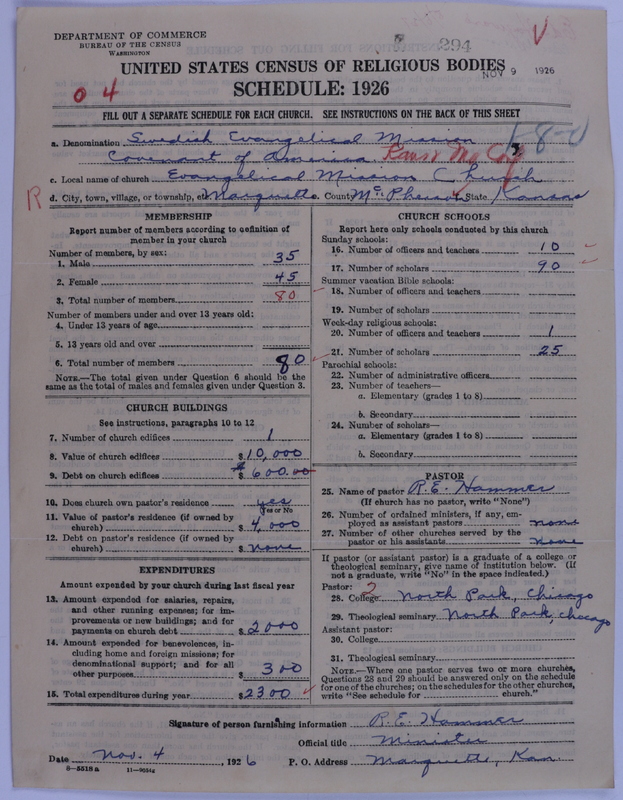 DEPARTMENT OF COMMERCE
BUREAU OF THE CENSUS
WASHINGTON
294
NOV 9 1926
UNITED STATES CENSUS OF RELIGIOUS BODIES
SCHEDULE: 1926
04
FILL OUT A SEPARATE SCHEDULE FOR EACH CHURCH. SEE INSTRUCTIONS ON THE BACK OF THIS SHEET
a. Denomination Swedish Evangelical Mission
Covenant of America
c. Local name of church Evangelical Mission Church
R d. City, town, village, or township, etc. Marquette e. County McPherson State Kansas
MEMBERSHIP
Report number of members according to definition of
member in your church
Number of members, by sex:
1. Male 35
2. Female 45
3. Total number of members 80
Number of members under and over 13 years old:
4. Under 13 years of age
5. 13 years old and over
6. Total number of members 80
NOTE.—The total given under Question 6 should be
same as the total of males and females given under Question 3.
CHURCH BUILDINGS
See instructions, paragraphs 10 to 12
7. Number of church edifices 1
8. Value of church edifices $10,000
9. Debt on church edifices $600.00
10. Does church own pastor's residence yes
Yes or No
11. Value of pastor's residence (if owned by
church) $4,000
12. Debt on pastor's residence (if owned by
church) $none
EXPENDITURES
Amount expended by your church during last fiscal year
13. Amount expended for salaries, repairs,
and other running expenses; for im-
provements or new buildings; and for
payments on church debt $2000
14. Amount expended for benevolences, in-
cluding home and foreign missions; for
denominational support; and for all
other purposes $300
15. Total expenditures during year $2300
CHURCH SCHOOLS
Report here only schools conducted by this church
Sunday schools:
16. Number of officers and teachers 10
17. Number of scholars 90
Summer vacation Bible schools:
18. Number of officers and teachers
19. Number of scholars
Week-day religious schools:
20. Number of officers and teachers 1
21. Number of scholars 25
Parochial schools:
22. Number of administrative officers
23. Number of teachers—
a. Elementary (grades 1 to 8)
b. Secondary
24. Number of scholars—
a. Elementary (grades 1 to 8)
b. Secondary
PASTOR
25. Name of pastor R.E. Hammer
(If church has no pastor, write "None")
26. Number of ordained ministers, if any, em-
ployed as assistant pastors none
27. Number of other churches served by the
pastor or his assistants none
If pastor (or assistant pastor) is a graduate of a college or
theological seminary, give name of institution below. (If
not a graduate, write "No" in the space indicated.)
Pastor:
28. College North Park, Chicago
29. Theological seminary North Park, Chicago
Assistant pastor:
30. College
31. Theological seminary
NOTE.—Where one pastor serves two or more churches,
Questions 28 and 29 should be answered only on the schedule
for one of the churches; on the schedules for the other churches,
write "See schedule for church."
Signature of person furnishing information R.E. Hammer
Official title Minister
Date Nov. 4, 1926 P. O. Address Marquette, Kan
8—5518a 11—9054g